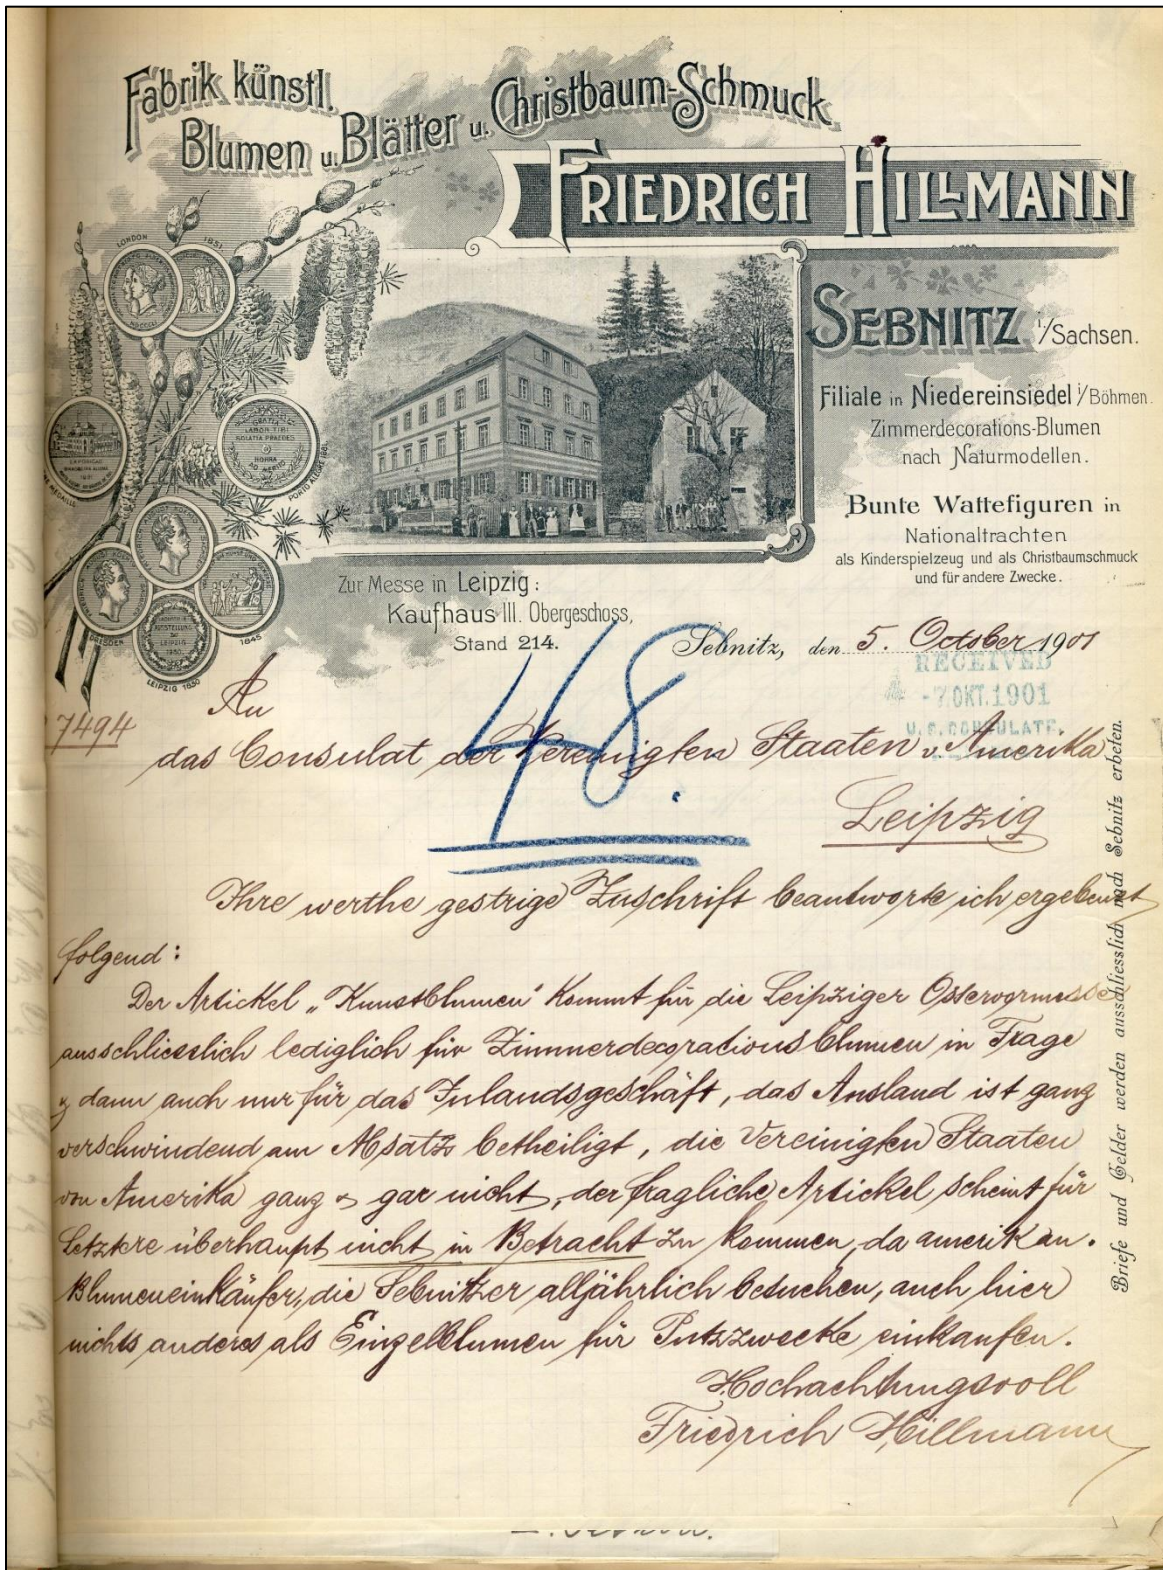 Fabrik künstl.
Blumen u. Blätter u. Christbaum-Schmuck
FRIEDRICH HILLMANN
SEBNITZ i/Sachsen.
Filiale in Niedereinsiedel i/Böhmen.
Zimmerdecorations-Blumen
nach Naturmodellen.
Bunte Wattefiguren in
Nationaltrachten
als Kinderspielzeug und als Christbaumschmuck
und für andere Zwecke.
LONDON 1851
PORTO ALEGRE 1881
DRESDEN 1845
LEIPZIG 1850
Zur Messe in Leipzig:
Kaufhaus III. Obergeschoss,
Stand 214.
Sebnitz, den 5. October 1901
RECEIVED
-7.OKT.1901
U.S. CONSULATE.
7494
48.
An
das Consulat der Vereinigten Staaten v. Amerika
Leipzig
Ihre werthe gestrige Zuschrift beantworte ich ergebenst
folgend:
Der Artickel „Kunstblumen" kommt für die Leipziger Ostervormesse
ausschliesslich lediglich für Zimmerdecorationsblumen in Frage
u. dann auch nur für das Inlandsgeschäft, das Ausland ist ganz
verschwindend am Absatz betheiligt, die Vereinigten Staaten
von Amerika ganz & gar nicht, der fragliche Artickel scheint für
Letztere überhaupt nicht in Betracht zu kommen, da amerikan.
Blumeneinkäufer, die Sebnitzer alljährlich besuchen, auch hier
nichts anderes als Einzelblumen für Putzzwecke einkaufen.
Hochachtungsvoll
Friedrich Hillmann
Briefe und Gelder werden ausschliesslich nach Sebnitz erbeten.